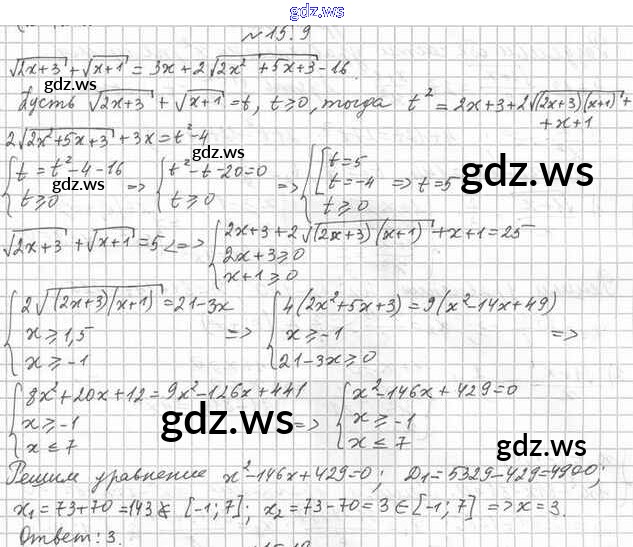 gdz.ws
№15.9
√(2x+3) + √(x+1) = 3x + 2√(2x² + 5x + 3) - 16.
gdz.ws
Пусть √(2x+3) + √(x+1) = t, t ≥ 0, тогда t² = 2x+3+2√((2x+3)(x+1)) +
+ x+1
2√(2x²+5x+3) + 3x = t² - 4
{ t = t² - 4 - 16; t ≥ 0 => { t² - t - 20 = 0; t ≥ 0 => { [ t = 5; t = -4; t ≥ 0 => t = 5
gdz.ws
gdz.ws
gdz.ws
√(2x+3) + √(x+1) = 5 <=> { 2x+3+2√((2x+3)(x+1)) + x+1 = 25; 2x+3 ≥ 0; x+1 ≥ 0
{ 2√((2x+3)(x+1)) = 21-3x; x ≥ 1,5; x ≥ -1 => { 4(2x²+5x+3) = 9(x²-14x+49); x ≥ -1; 21-3x ≥ 0 =>
{ 8x²+20x+12 = 9x²-126x+441; x ≥ -1; x ≤ 7 => { x²-146x+429=0; x ≥ -1; x ≤ 7
gdz.ws
gdz.ws
Решим уравнение x²-146x+429=0; D₁=5329-429=4900;
x₁=73+70=143 ∉ [-1;7]; x₂=73-70=3 ∈ [-1;7] => x=3.
Ответ: 3.